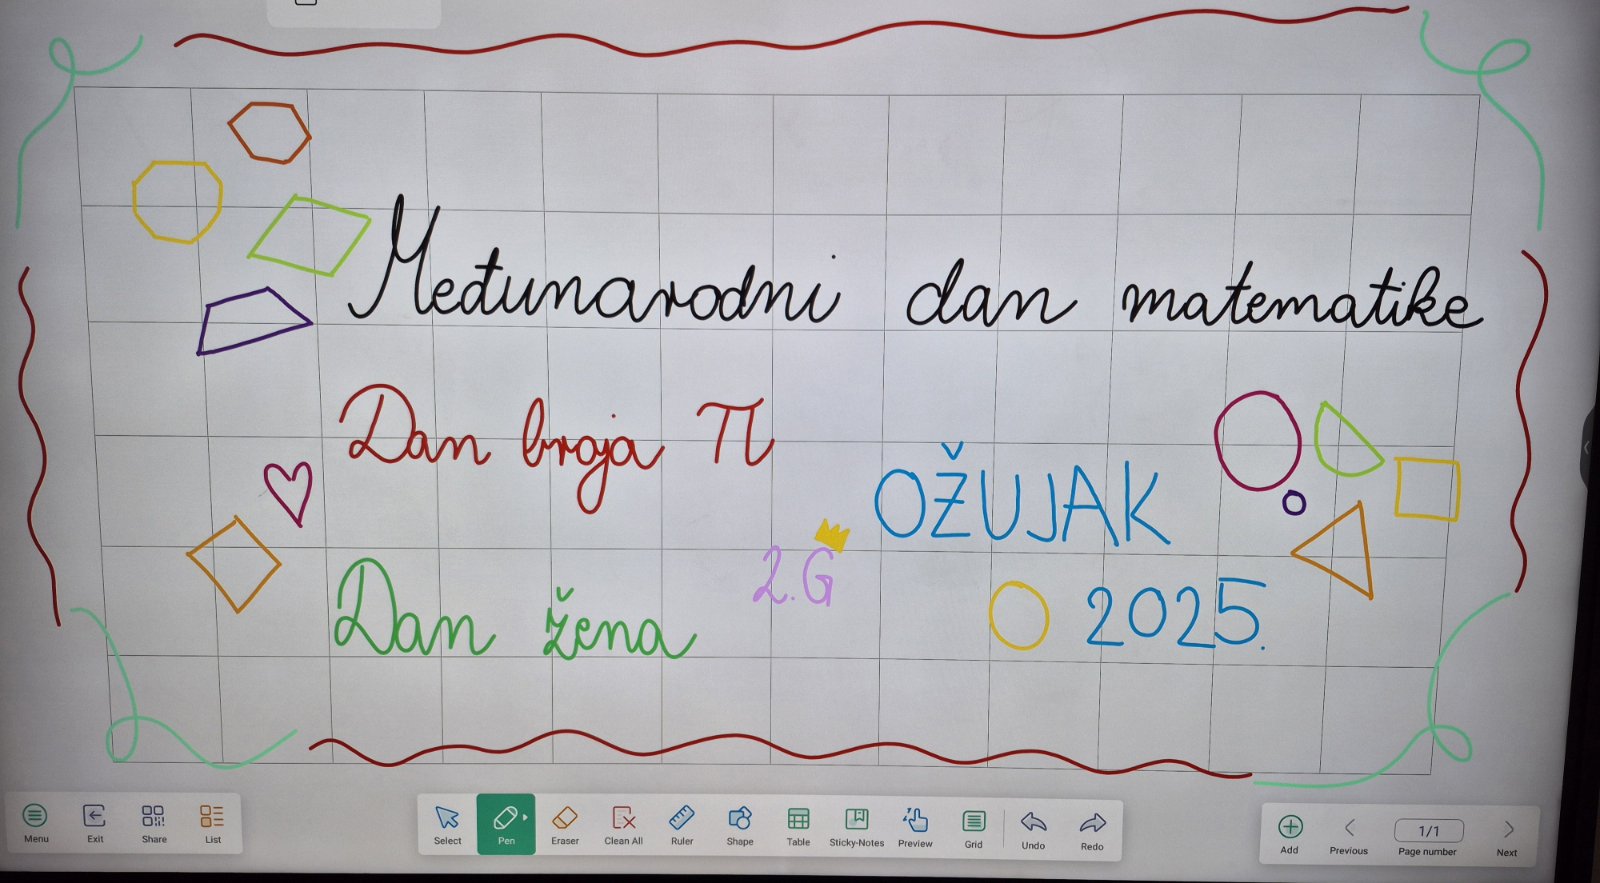 Međunarodni dan matematike
Dan broja π
OŽUJAK
2.G
Dan žena
2025.
Menu
Exit
Share
List
Select
Pen
Eraser
Clean All
Ruler
Shape
Table
Sticky-Notes
Preview
Grid
Undo
Redo
Add
Previous
1/1
Page number
Next